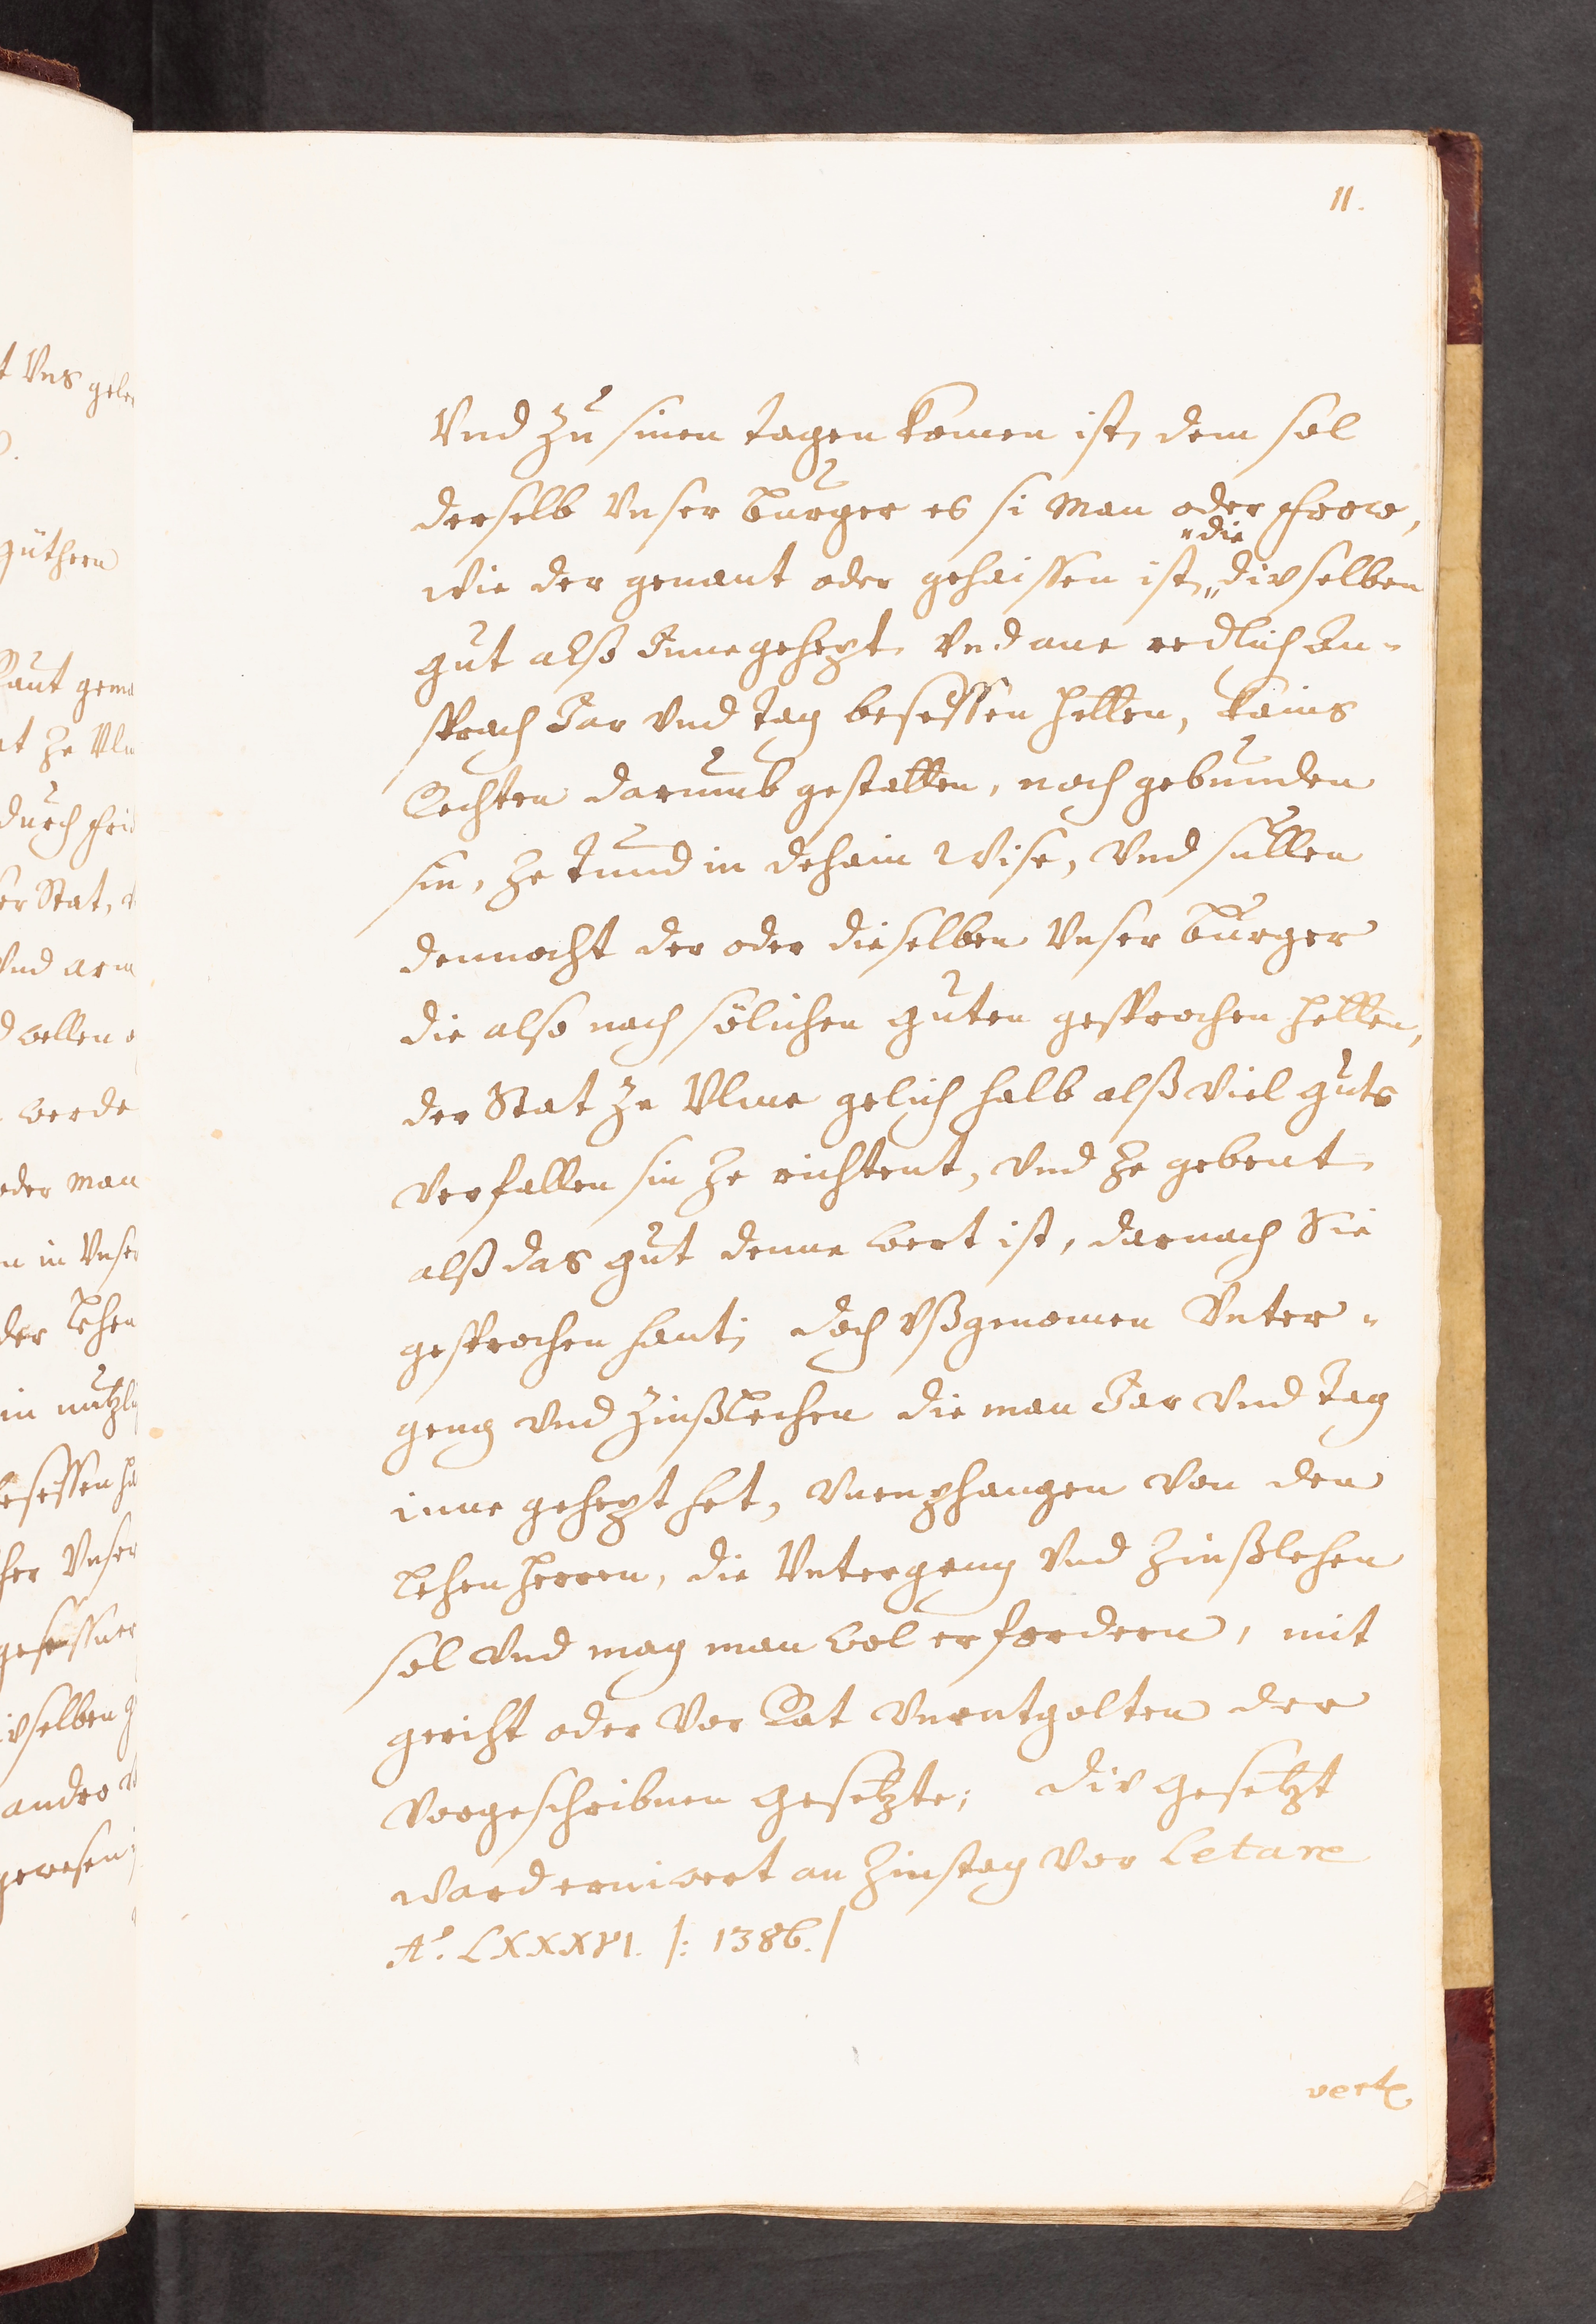 11.
Vnd zu sinen tagen komen ist, dem sol
derselb Vnser Burger es si Man oder Frow,
wie der genant oder gehaissen ist, „die
„divselben
gut alß Innegehept, Vnd ane redlich An-
sprach Jar Vnd tag besessen hetten, kains
Rechten darumb gestatten, noch gebunden
sin, ze tund in dehain Wise, Vnd sullen
dennocht der oder dieselben Vnser Burger
die also nach sölichen guten gesprochen hetten,
der Stat ze Vlme gelich halb alß Viel guts
Verfallen sin ze richtent, Vnd ze gebent
alß das gut denne wert ist, darnach Sie
gesprochen hant; doch Vßgenomen Vnter-
geng Vnd Zinßlechen die man Jar Vnd tag
inne gehept het, Vnenphangen Von den
Lehen Herren, die Vntergeng Vnd Zinßlehen
sol Vnd mag man wol erfordern, mit
gericht oder Vor Rat Vnentgolten der
Vorgeschribnen gesetzte; div gesetzt
ward erniwert an Zinstag Vor Letare
Aº. LXXXVI. /: 1386. /
verte
t Vns gele
güthern
Raut gema
at ze Vlm
durch Frid
er Stat,
Vnd arm
wellen
werde
oder Man
n in Vnser
der Lehen
in nutzli
besessen ha
her Vnser
gesessner
ivselben g
andro
gewesen